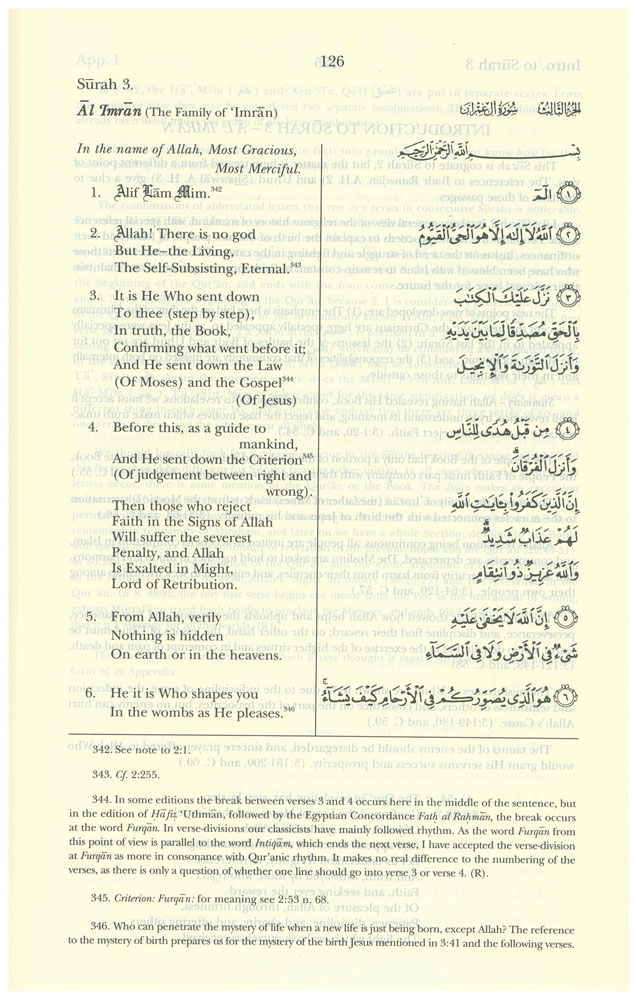 126
Sūrah 3.
Āl 'Imrān (The Family of 'Imrān)
الجزء الثالث سورة آل عمران
In the name of Allah, Most Gracious,
Most Merciful.
بِسْمِ اللَّهِ الرَّحْمَٰنِ الرَّحِيمِ
1. Alif Lām Mim.³⁴²
2. Allah! There is no god
But He—the Living,
The Self-Subsisting, Eternal.³⁴³
3. It is He Who sent down
To thee (step by step),
In truth, the Book,
Confirming what went before it;
And He sent down the Law
(Of Moses) and the Gospel³⁴⁴
(Of Jesus)
4. Before this, as a guide to
mankind,
And He sent down the Criterion³⁴⁵
(Of judgement between right and
wrong).
Then those who reject
Faith in the Signs of Allah
Will suffer the severest
Penalty, and Allah
Is Exalted in Might,
Lord of Retribution.
5. From Allah, verily
Nothing is hidden
On earth or in the heavens.
6. He it is Who shapes you
In the wombs as He pleases.³⁴⁶
١ الٓمٓ
٢ ٱللَّهُ لَآ إِلَٰهَ إِلَّا هُوَ ٱلْحَىُّ ٱلْقَيُّومُ
٣ نَزَّلَ عَلَيْكَ ٱلْكِتَٰبَ
بِٱلْحَقِّ مُصَدِّقًا لِّمَا بَيْنَ يَدَيْهِ
وَأَنزَلَ ٱلتَّوْرَىٰةَ وَٱلْإِنجِيلَ
٤ مِن قَبْلُ هُدًى لِّلنَّاسِ
وَأَنزَلَ ٱلْفُرْقَانَ ۗ
إِنَّ ٱلَّذِينَ كَفَرُوا۟ بِـَٔايَٰتِ ٱللَّهِ
لَهُمْ عَذَابٌ شَدِيدٌ ۗ
وَٱللَّهُ عَزِيزٌ ذُو ٱنتِقَامٍ
٥ إِنَّ ٱللَّهَ لَا يَخْفَىٰ عَلَيْهِ
شَىْءٌ فِى ٱلْأَرْضِ وَلَا فِى ٱلسَّمَآءِ
٦ هُوَ ٱلَّذِى يُصَوِّرُكُمْ فِى ٱلْأَرْحَامِ كَيْفَ يَشَآءُ ۚ
342. See note to 2:1.
343. Cf. 2:255.
344. In some editions the break between verses 3 and 4 occurs here in the middle of the sentence, but
in the edition of Hāfiz 'Uthmān, followed by the Egyptian Concordance Fath al Rahmān, the break occurs
at the word Furqān. In verse-divisions our classicists have mainly followed rhythm. As the word Furqān from
this point of view is parallel to the word Intiqām, which ends the next verse, I have accepted the verse-division
at Furqān as more in consonance with Qur'anic rhythm. It makes no real difference to the numbering of the
verses, as there is only a question of whether one line should go into verse 3 or verse 4. (R).
345. Criterion: Furqān: for meaning see 2:53 n. 68.
346. Who can penetrate the mystery of life when a new life is just being born, except Allah? The reference
to the mystery of birth prepares us for the mystery of the birth Jesus mentioned in 3:41 and the following verses.